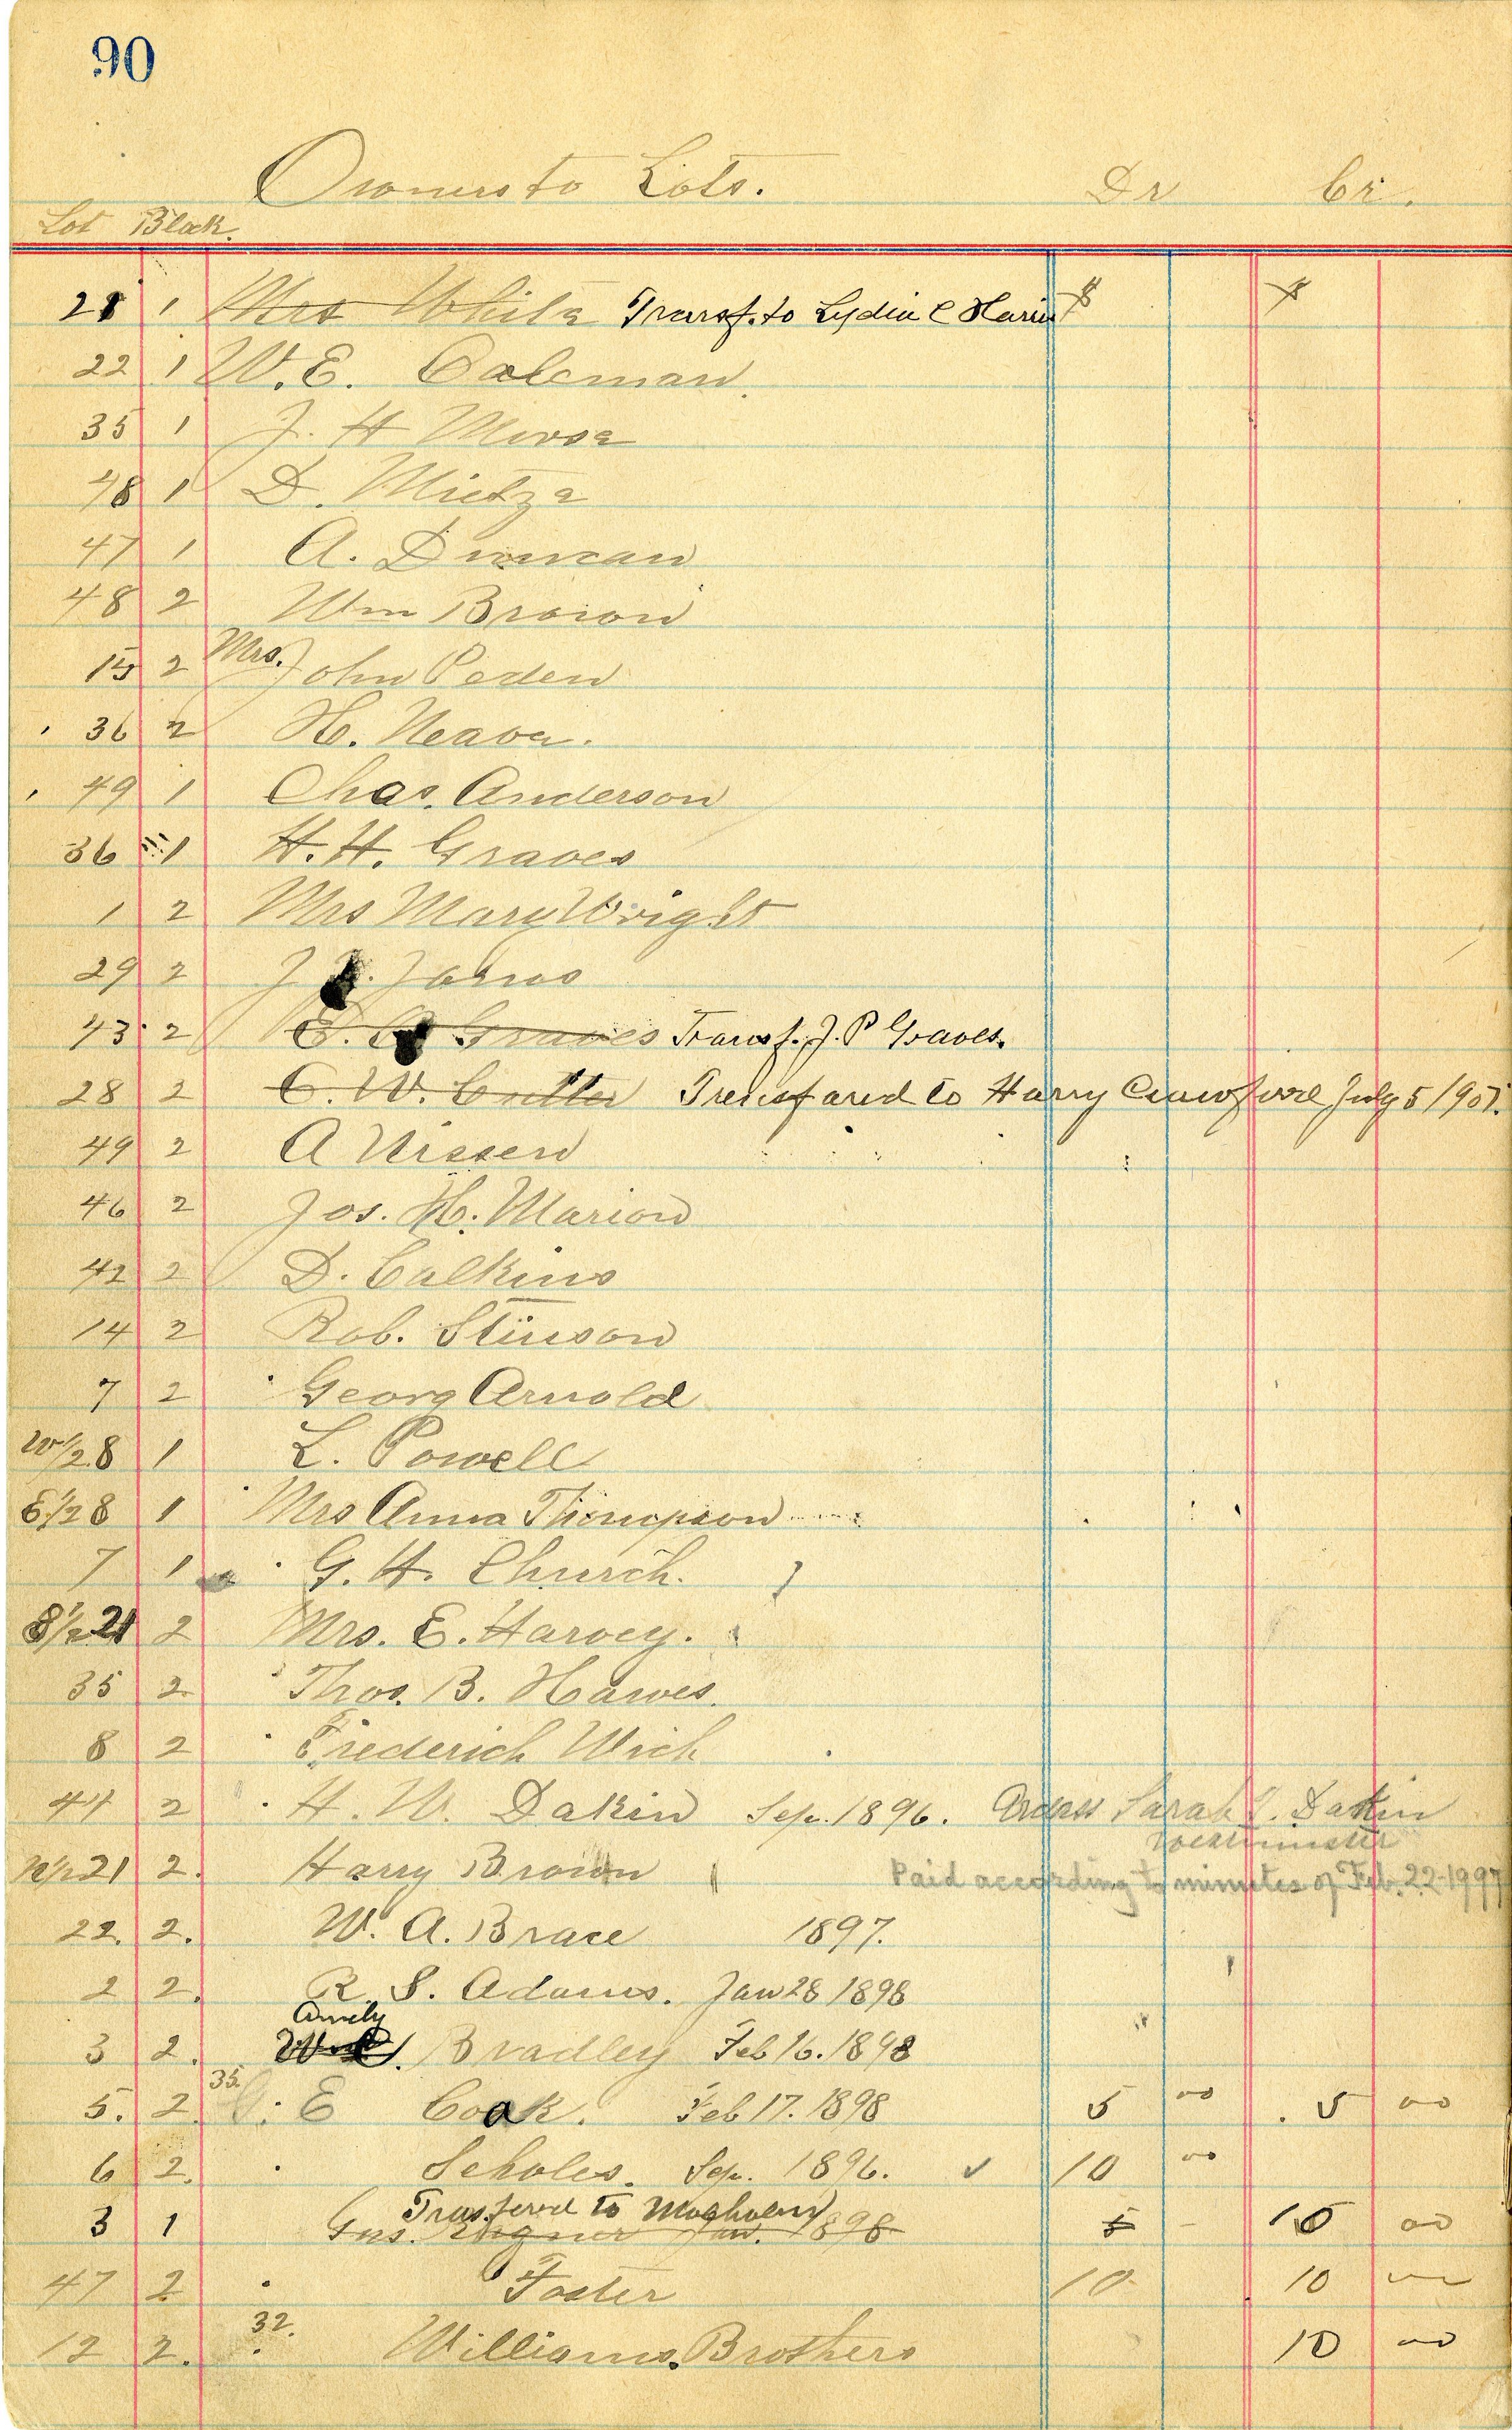 90
Owners to Lots. Dr Cr.
Lot Block.
21 1 Mrs White Transf. to Lydia C $ $
22 1 W. E. Coleman.
35 1 J. H Morse
48 1 D. Mietze
47 1 A. Duncan
48 2 Wm Brown
15 2 Mrs. John Peden
36 2 H. Neave.
49 1 Chas. Anderson
36 1 H. H. Graves
1 2 Mrs Mary Wright
29 2 J
43 2 E. Graves Transf. J. P Graves.
28 2 C. W. Cutler Transfared to Harry July 5 1907.
49 2 A Nissen
46 2 Jos. H. Marion
42 2 D. Calkins
14 2 Rob. Stinson
7 2 Georg Arnold
W 1/2 8 1 L. Powell
E 1/2 8 1 Mrs Anna Thompson
7 1 G. H. Church.
21 2 Mrs. E. Harvey.
35 2 Thos. B. Hawes.
8 2 Friederich Wich
44 2 H. W. Dakin Sep. 1896. Sarah Dakin
Westminster
N 1/2 21 2. Harry Brown Paid according to minutes of Feb. 22-1997
22. 2. W. A. Brace 1897.
2 2. R. S. Adams. Jan 28 1898
Amely
3 2. Bradley Feb 16. 1898
35.
5. 2. G. E Cook. Feb 17. 1898 5 00 5 00
6 2. Scholes. Sep. 1896. ✓ 10 00
Transferred to
3 1 Gus. Jan. 1898 5 - 10 00
47 2 Foster 10 10
32.
12 2. Williams. Brothers 10 00